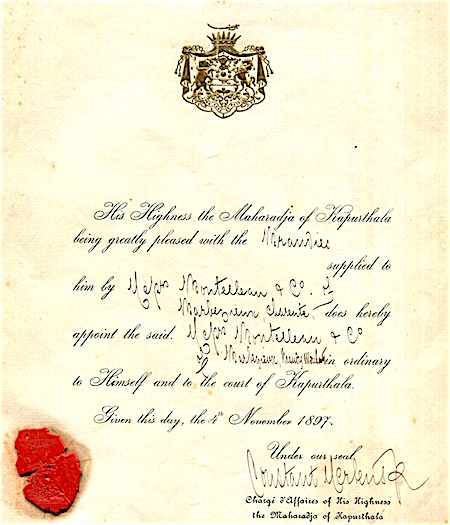 His Highness the Maharadja of Kapurthala
being greatly pleased with the Brandies
supplied to
him by Messrs Montelleau & Co. of
Barbezieux, Charente, does hereby
appoint the said. Messrs Montelleau & Co
of Barbezieux, in ordinary
to Himself and to the court of Kapurthala.
Given this day, the 4th November 1897.
Under our seal,
Constant
Chargé d'Affaires of His Highness
the Maharadja of Kapurthala